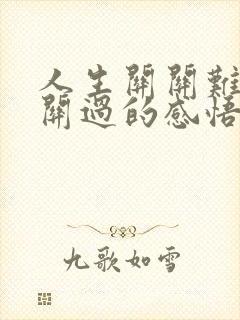 人生關關難
關過的感悟
九歌如雪